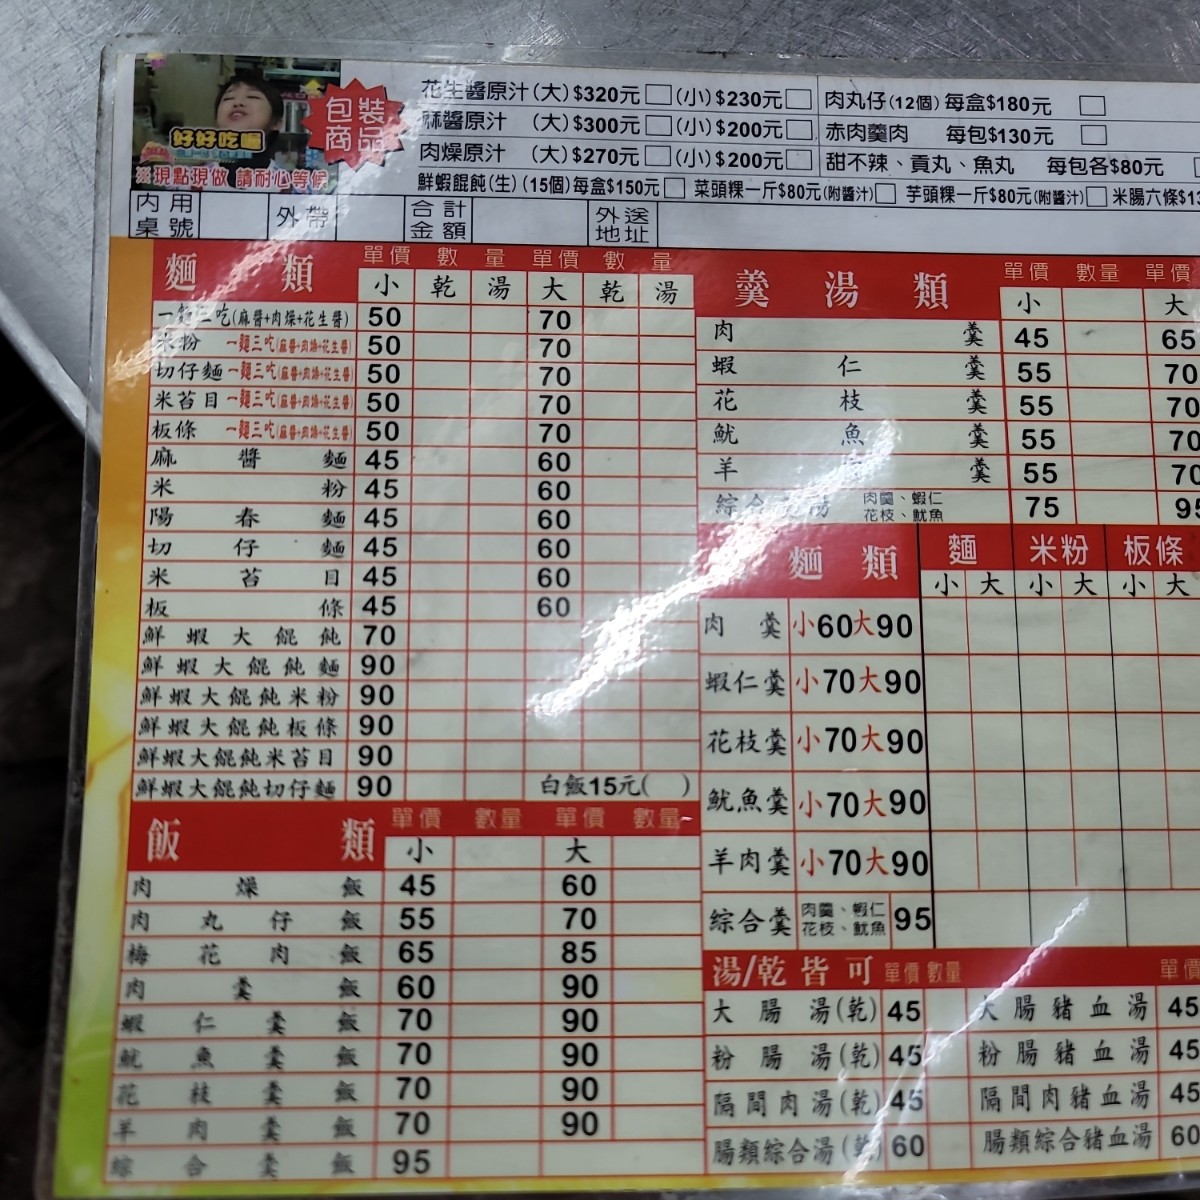 好好吃喔
※現點現做 請耐心等候
包裝
商品
花生醬原汁(大)$320元 (小)$230元
麻醬原汁 (大)$300元 (小)$200元
肉燥原汁 (大)$270元 (小)$200元
鮮蝦餛飩(生)(15個)每盒$150元 菜頭粿一斤$80元(附醬汁) 芋頭粿一斤$80元(附醬汁) 米腸六條
肉丸仔(12個)每盒$180元
赤肉羹肉 每包$130元
甜不辣、貢丸、魚丸 每包各$80元
內用
桌號
外帶
合計
金額
外送
地址
麵類 單價 數量 單價 數量
小 乾 湯 大 乾 湯
一麵三吃(麻醬+肉燥+花生醬) 50 70
米粉 一麵三吃(麻醬+肉燥+花生醬) 50 70
切仔麵 一麵三吃(麻醬+肉燥+花生醬) 50 70
米苔目 一麵三吃(麻醬+肉燥+花生醬) 50 70
板條 一麵三吃(麻醬+肉燥+花生醬) 50 70
麻醬麵 45 60
米粉 45 60
陽春麵 45 60
切仔麵 45 60
米苔目 45 60
板條 45 60
鮮蝦大餛飩 70
鮮蝦大餛飩麵 90
鮮蝦大餛飩米粉 90
鮮蝦大餛飩板條 90
鮮蝦大餛飩米苔目 90
鮮蝦大餛飩切仔麵 90 白飯15元( )
飯類 單價 數量 單價 數量
小 大
肉燥飯 45 60
肉丸仔飯 55 70
梅花肉飯 65 85
肉羹飯 60 90
蝦仁羹飯 70 90
魷魚羹飯 70 90
花枝羹飯 70 90
羊肉羹飯 70 90
綜合羹飯 95
羹湯類 單價 數量 單價
小 大
肉羹 45 65
蝦仁羹 55 70
花枝羹 55 70
魷魚羹 55 70
羊 羹 55 70
綜合 湯 肉羹、蝦仁 75 95
花枝、魷魚
麵類 麵 米粉 板條
小 大 小 大 小 大
肉羹 小60大90
蝦仁羹 小70大90
花枝羹 小70大90
魷魚羹 小70大90
羊肉羹 小70大90
綜合羹 肉羹、蝦仁 95
花枝、魷魚
湯/乾皆可 單價 數量 單價
大腸湯(乾) 45 大腸豬血湯 45
粉腸湯(乾) 45 粉腸豬血湯 45
隔間肉湯(乾) 45 隔間肉豬血湯 45
腸類綜合湯(乾) 60 腸類綜合豬血湯 60